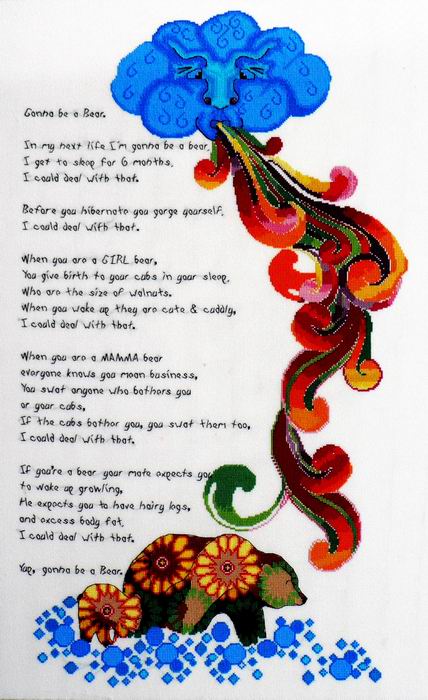 Gonna be a Bear.
In my next life I'm gonna be a bear.
I get to sleep for 6 months.
I could deal with that.
Before you hibernate you gorge yourself.
I could deal with that.
When you are a GIRL bear,
You give birth to your cubs in your sleep,
Who are the size of walnuts.
When you wake up they are cute & cuddly,
I could deal with that.
When you are a MAMMA bear
everyone knows you mean business,
You swat anyone who bothers you
or your cubs,
If the cubs bother you, you swat them too,
I could deal with that.
If you're a bear your mate expects you
to wake up growling,
He expects you to have hairy legs,
and excess body fat,
I could deal with that.
Yup, gonna be a Bear.